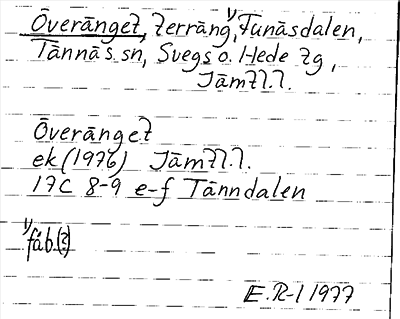 Överänget, terräng,¹⁾ Funäsdalen,
Tännäs sn, Svegs o. Hede tg,
Jämtl.l.
Överänget
ek (1976) Jämtl.l.
17C 8-9 e-f Tänndalen
¹⁾ fäb(?)
E.R-l 1977